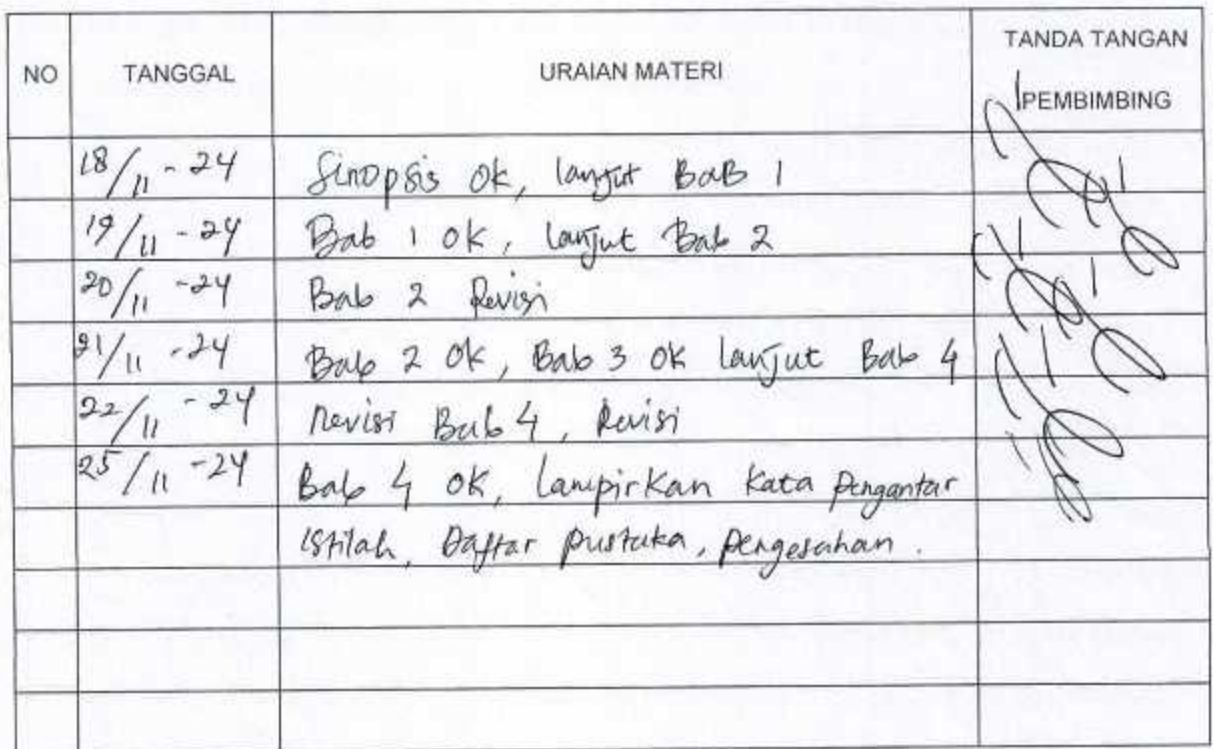 NO TANGGAL URAIAN MATERI TANDA TANGAN PEMBIMBING
18/11 - 24 Sinopsis Ok, lanjut BaB 1
19/11 - 24 Bab 1 OK, lanjut Bab 2
20/11 - 24 Bab 2 Revisi
21/11 - 24 Bab 2 Ok, Bab 3 OK lanjut Bab 4
22/11 - 24 Revisi Bab 4, Revisi
25/11 - 24 Bab 4 OK, Lampirkan Kata Pengantar
Istilah, Daftar pustaka, pengesahan.